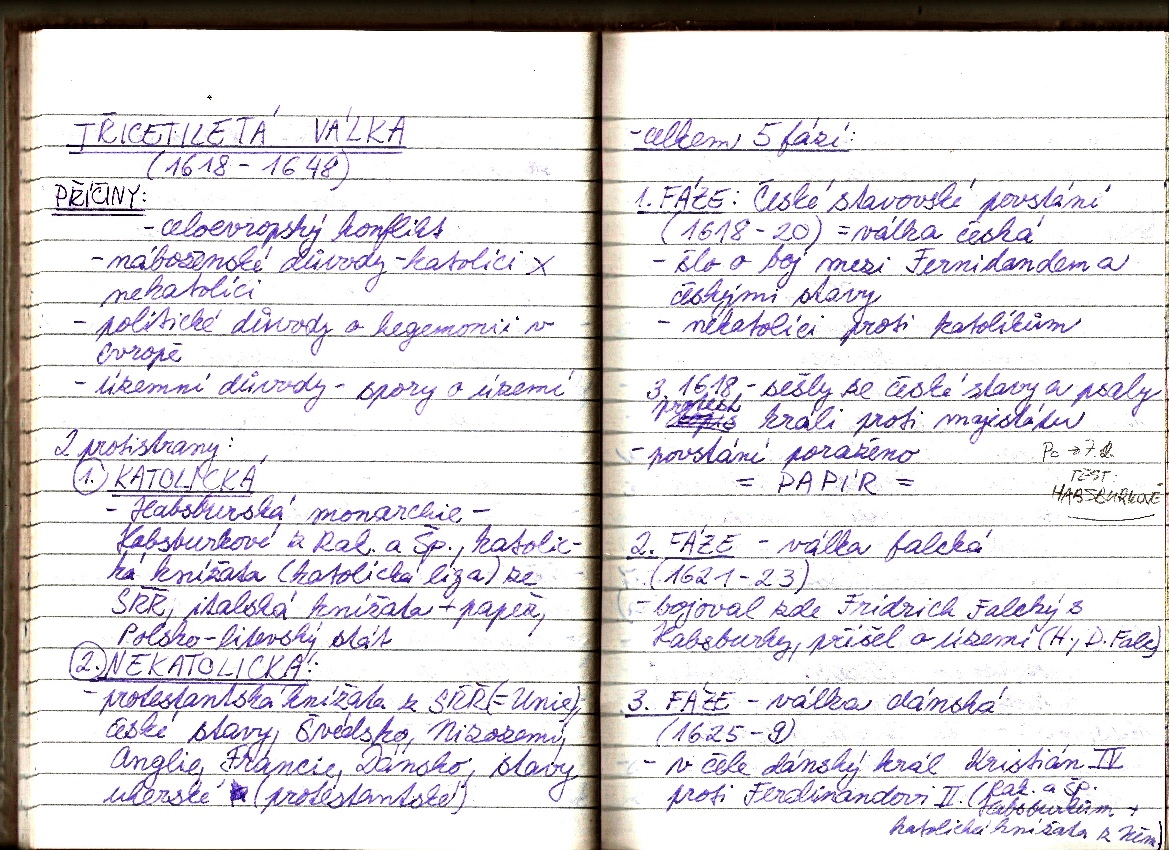 TŘICETILETÁ VÁLKA
(1618 - 1648)
PŘÍČINY:
- celoevropský konflikt
- náboženské důvody - katolíci x
nekatolíci
- politické důvody o hegemonii v
Evropě
- územní důvody - spory o území
2 protistrany:
1. KATOLICKÁ
- Habsburská monarchie -
Habsburkové z Rak. a Šp., katolic-
ká knížata (katolická liga) ze
SŘŘ, italská knížata + papež,
Polsko-litevský stát
2. NEKATOLICKÁ:
- protestantská knížata z SŘŘ (= Unie),
české stavy, Švédsko, Nizozemí,
Anglie, Francie, Dánsko, stavy
uherské (protestantské)
- celkem 5 fází:
1. FÁZE: České stavovské povstání
(1618 - 20) = válka česká
- šlo o boj mezi Fernidandem a
českými stavy
- nekatolíci proti katolíkům
3. 1618 - sešly se české stavy a psaly
protest králi proti majestátu
- povstání poraženo
= PAPÍR =
Po → 7.2.
TEST:
HABSBURKOVÉ
2. FÁZE - válka falcká
(1621 - 23)
- bojoval zde Fridrich Falcký s
Habsburky, přišel o území (H., D. Falc)
3. FÁZE - válka dánská
(1625 - 9)
- v čele dánský král Kristián IV
proti Ferdinandovi II. (Rak. a Šp.
Habsburkům +
katolická knížata z Něm)